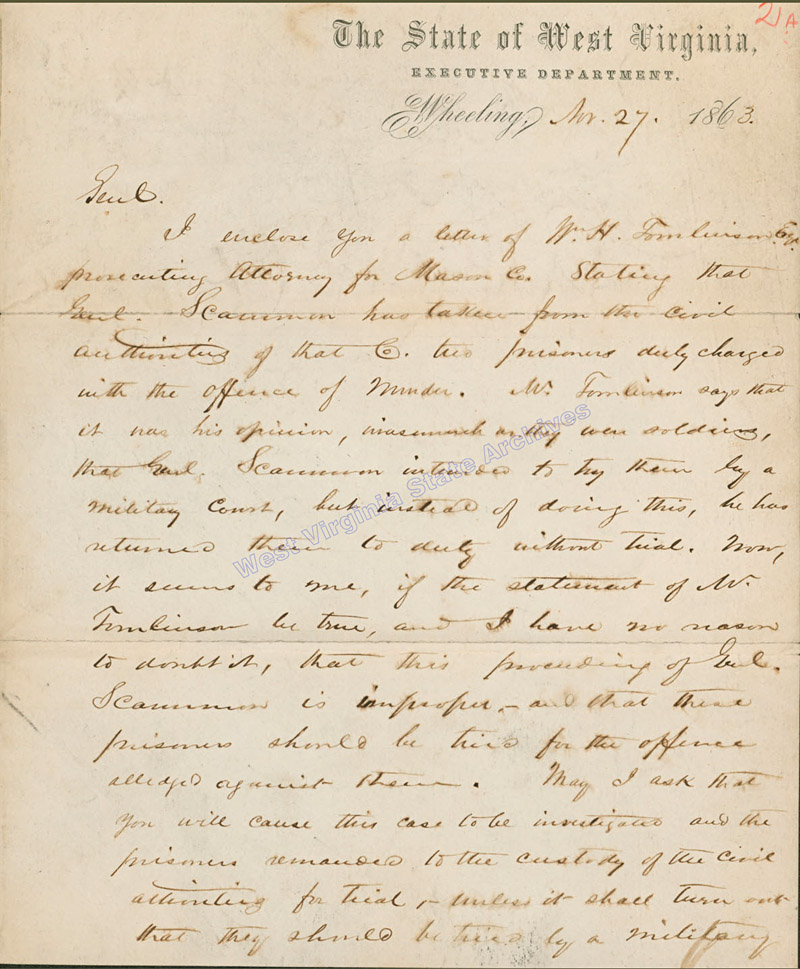 2 A
The State of West Virginia,
EXECUTIVE DEPARTMENT.
Wheeling, Nov. 27. 1863.
Genl.
I enclose you a letter of Wm. H. Tomlinson Esqr.
prosecuting Attorney for Mason Co. Stating that
Genl. Scammon has taken from the civil
authorities of that C. two prisoners duly charged
with the offence of Murder. Mr. Tomlinson says that
it was his opinion, inasmuch as they were soldiers,
that Genl. Scammon intended to try them by a
military court, but instead of doing this, he has
returned them to duty without trial. Now,
it seems to me, if the statement of Mr.
Tomlinson be true, and I have no reason
to doubt it, that this proceeding of Genl.
Scammon is improper,- and that these
prisoners should be tried for the offence
alledged against them. May I ask that
you will cause this case to be investigated and the
prisoners remanded to the custody of the civil
athorities for trial,- unless it shall turn out
that they should be tried by a military
West Virginia State Archives